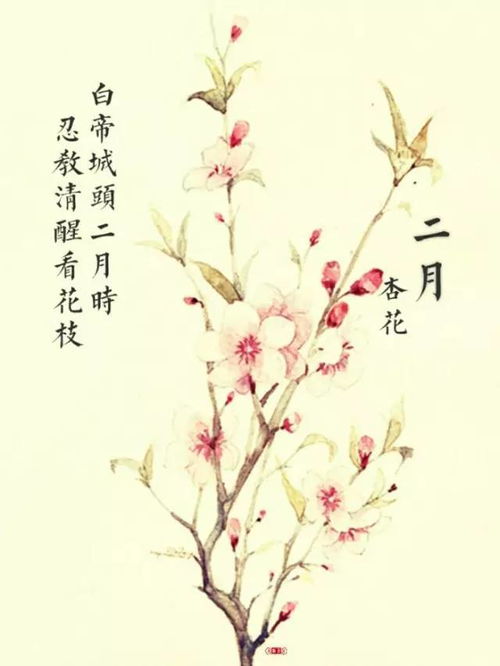 二月
杏花
白帝城頭二月時
忍教清醒看花枝